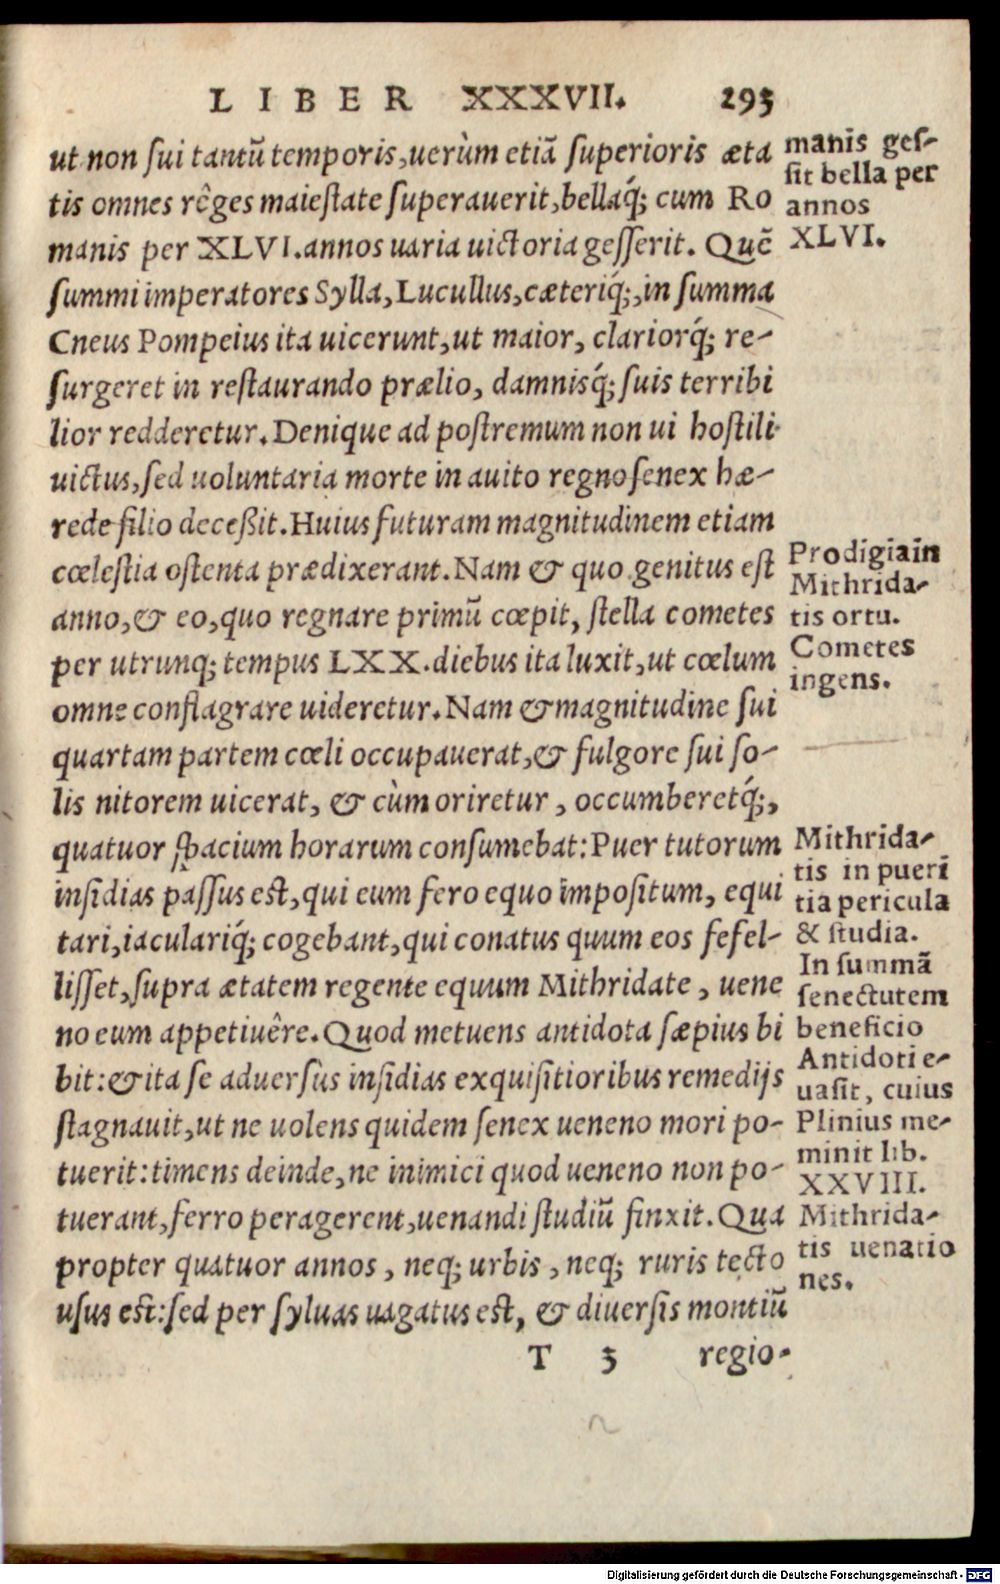 LIBER XXXVII. 293
ut non sui tantũ temporis, uerùm etiã superioris æta
tis omnes rêges maiestate superauerit, bellaq́; cum Ro
manis per XLVI. annos uaria uictoria gesserit. Quẽ
summi imperatores Sylla, Lucullus, cæteriq́;, in summa
Cneus Pompeius ita uicerunt, ut maior, clariorq́; re-
surgeret in restaurando prælio, damnisq́; suis terribi
lior redderetur. Denique ad postremum non ui hostili
uictus, sed uoluntaria morte in auito regno senex hæ-
rede filio deceßit. Huius futuram magnitudinem etiam
cœlestia ostenta prædixerant. Nam & quo genitus est
anno, & eo, quo regnare primũ cœpit, stella cometes
per utrunq; tempus LXX. diebus ita luxit, ut cœlum
omne conflagrare uideretur. Nam & magnitudine sui
quartam partem cœli occupauerat, & fulgore sui so-
lis nitorem uicerat, & cùm oriretur, occumberetq́;,
quatuor spacium horarum consumebat: Puer tutorum
insidias passus est, qui eum fero equo impositum, equi
tari, iaculariq́; cogebant, qui conatus quum eos fefel-
lisset, supra ætatem regente equum Mithridate, uene
no eum appetiuêre. Quod metuens antidota sæpius bi
bit: & ita se aduersus insidias exquisitioribus remedijs
stagnauit, ut ne uolens quidem senex ueneno mori po-
tuerit: timens deinde, ne inimici quod ueneno non po-
tuerant, ferro peragerent, uenandi studiũ finxit. Qua
propter quatuor annos, neq; urbis, neq; ruris tecto
usus est: sed per syluas uagatus est, & diuersis montiũ
T 3 regio-
manis ges-
sit bella per
annos
XLVI.
Prodigia in
Mithrida-
tis ortu.
Cometes
ingens.
Mithrida-
tis in pueri
tia pericula
& studia.
In summã
senectutem
beneficio
Antidoti e-
uasit, cuius
Plinius me-
minit lib.
XXVIII.
Mithrida-
tis uenatio
nes.
Digitalisierung gefördert durch die Deutsche Forschungsgemeinschaft - DFG